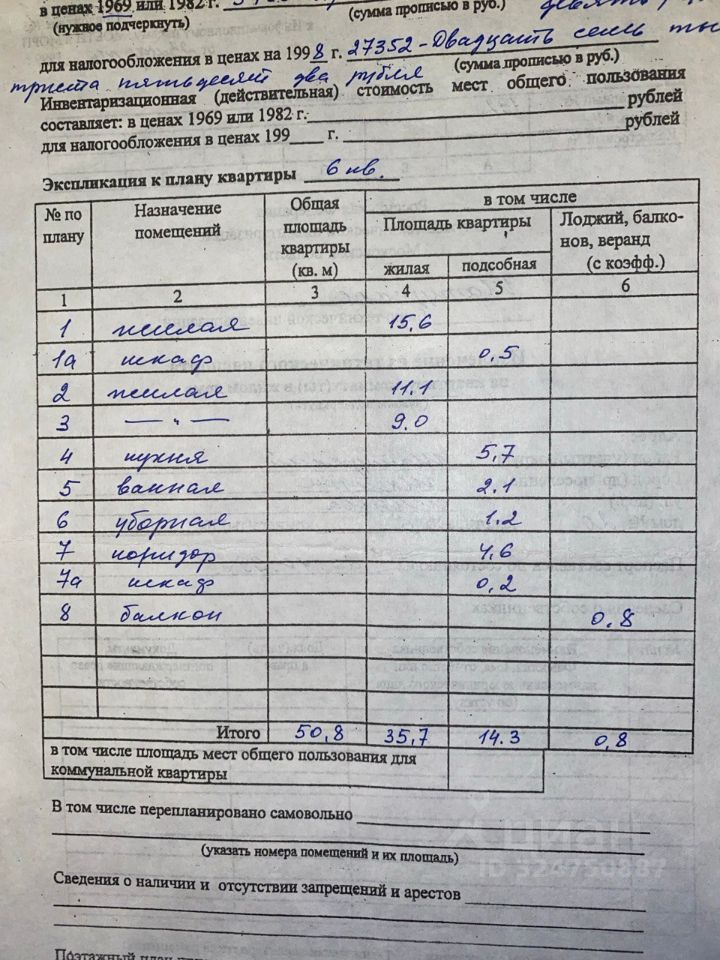 в ценах 1969 или 1982 г.
(нужное подчеркнуть) (сумма прописью в руб.)
для налогообложения в ценах на 1998 г. 27352 - Двадцать семь ты
триста пятьдесят два рубля (сумма прописью в руб.)
Инвентаризационная (действительная) стоимость мест общего пользования
составляет: в ценах 1969 или 1982 г. рублей
для налогообложения в ценах 199 г. рублей
Экспликация к плану квартиры 6 кв.
№ по плану Назначение помещений Общая площадь квартиры (кв. м) в том числе
Площадь квартиры Лоджий, балко-нов, веранд (с коэфф.)
жилая подсобная
1 2 3 4 5 6
1 жилая 15,6
1а шкаф 0,5
2 жилая 11.1
3 — " — 9.0
4 кухня 5,7
5 ванная 2.1
6 уборная 1.2
7 коридор 4,6
7а шкаф 0,2
8 балкон 0,8
Итого 50,8 35,7 14.3 0,8
в том числе площадь мест общего пользования для
коммунальной квартиры
В том числе перепланировано самовольно
(указать номера помещений и их площадь)
Сведения о наличии и отсутствии запрещений и арестов
циан
ID 326750887
Поэтажный план